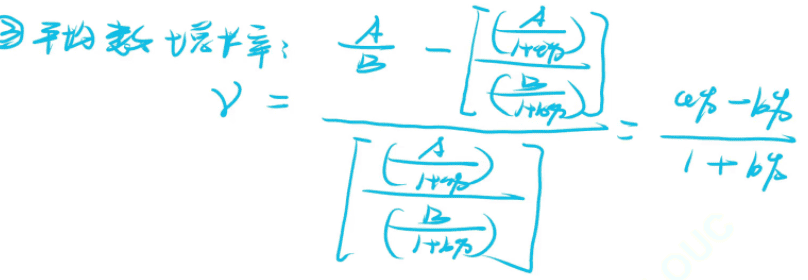 ③平均数增长率:
r = \frac{\frac{A}{B} - \left[\frac{\left(\frac{A}{1+a\%}\right)}{\left(\frac{B}{1+b\%}\right)}\right]}{\left[\frac{\left(\frac{A}{1+a\%}\right)}{\left(\frac{B}{1+b\%}\right)}\right]} = \frac{a\% - b\%}{1 + b\%}
OUC